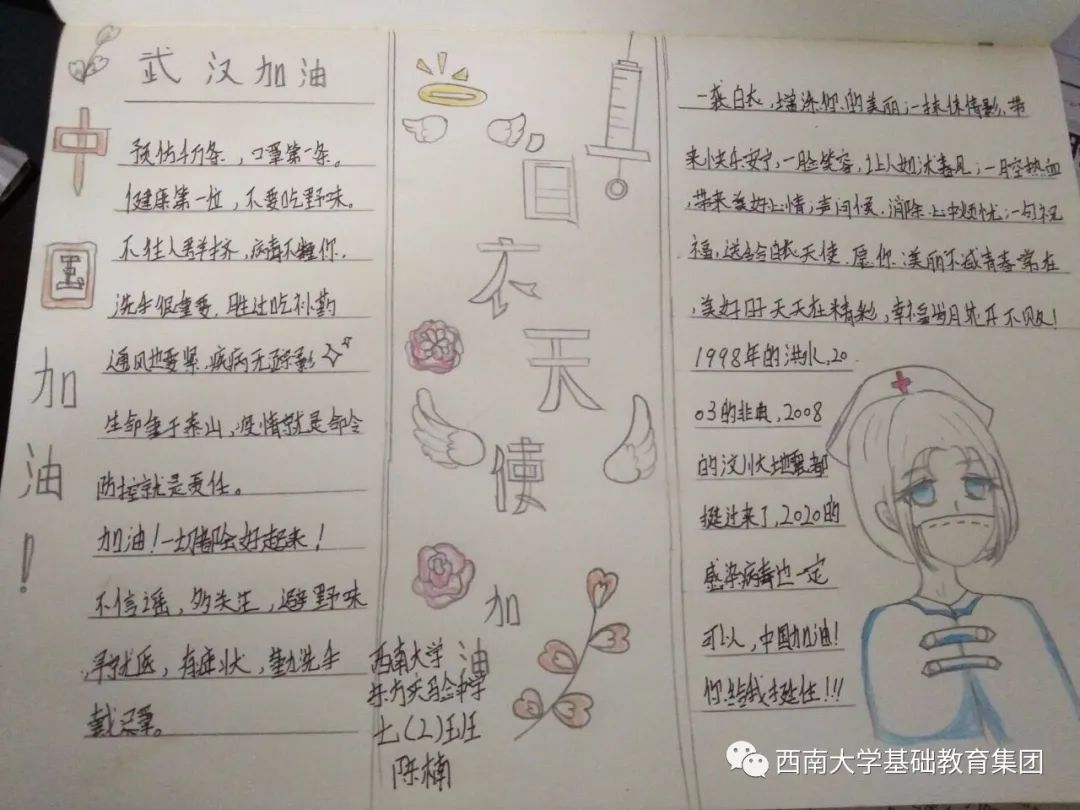 武汉加油
中国加油！
预防千万条，口罩第一条。
健康第一位，不要吃野味。
不往人群挤，病毒不睡你，
洗手很重要，胜过吃补药
通风也要紧，疾病无踪影
生命重于泰山，疫情就是命令
防控就是责任。
加油！一切都会好起来！
不信谣，多关注，避野味
早就医，有症状，勤洗手
戴口罩。
白衣天使
加油
西南大学
东方实验中学
七（2）班
陈楠
一袭白衣，增添你的美丽；一抹倩影，带
来快乐安宁，一脸笑容，让人如沐春风；一腔热血
，带来美好心情；声问候，消除心中烦忧；一句祝
福，送给白衣天使，愿你：美丽不减青春常在
，美好日子天天在精彩，幸福岁月花开不败！
1998年的洪水，20
03的非典，2008
的汶川大地震都
挺过来了，2020的
感染病毒也一定
可以，中国加油！
你给我挺住！！！
西南大学基础教育集团